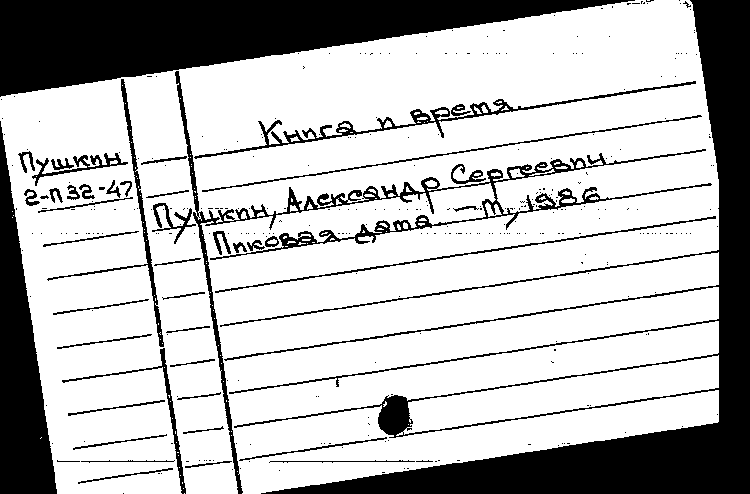 Книга и время.
Пушкин
2-П32-47
Пушкин, Александр Сергеевич.
Пиковая дама. — М, 1986